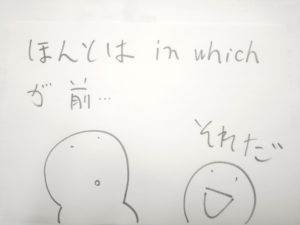 ほんとは in which
が 前…
それだ